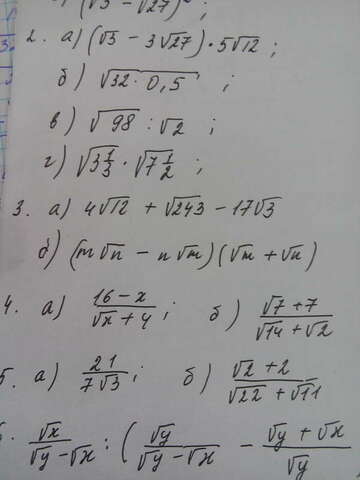 (√3 − √27)²;
2. а) (√3 − 3√27) · 5√12;
б) √(32 · 0,5);
в) √98 : √2;
г) √(3 1/3) · √(7 1/2);
3. а) 4√12 + √243 − 17√3
б) (m√n − n√m)(√m + √n)
4. а) (16 − x)/(√x + 4); б) (√7 + 7)/(√14 + √2)
5. а) 21/(7√3); б) (√2 + 2)/(√22 + √11)
√x/(√y − √x) : (√y/(√y − √x) − (√y + √x)/√y